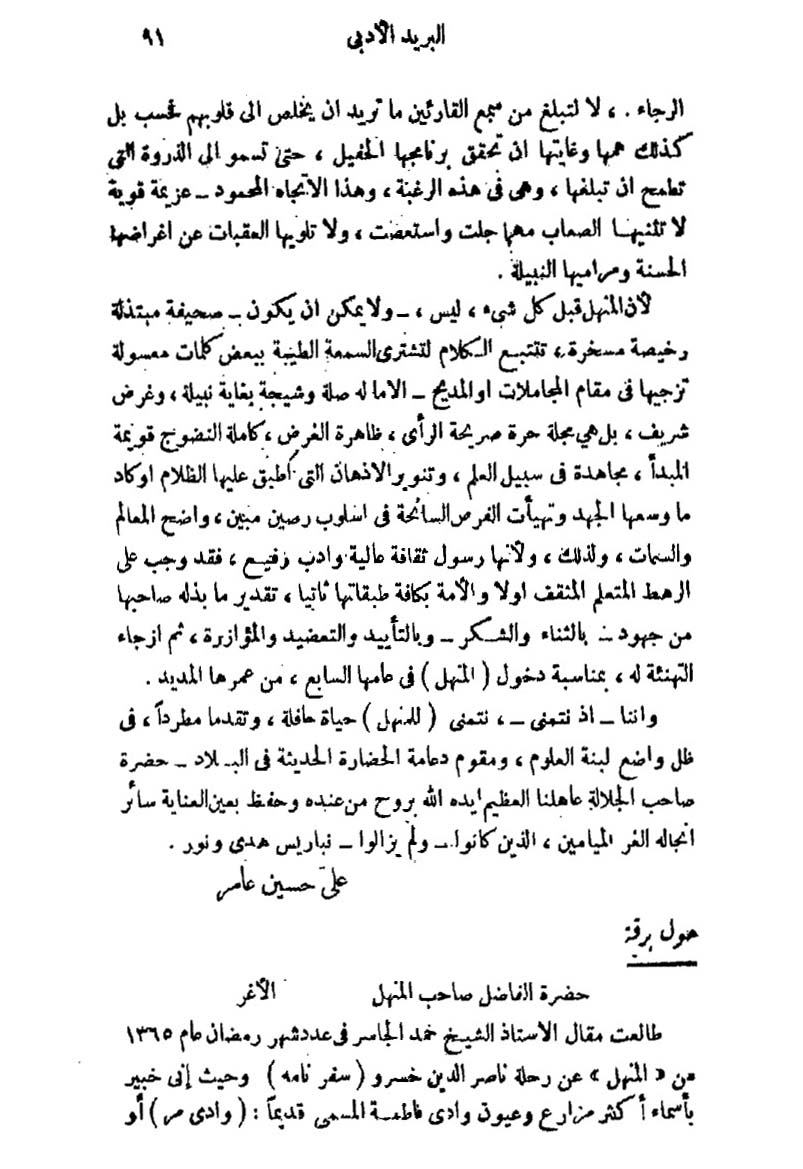 البريد الأدبى ٩١
الرجاء . ، لا لتبلغ من صميم القارئين ما تريد ان يخلص الى قلوبهم فحسب بل
كذلك همها وغايتها ان تحقق برنامجها الحفيل ، حتى تسمو الى الذروة التي
تطمح ان تبلغها ، وهى فى هذه الرغبة ، وهذا الاتجاه المحمود ــ عزيمة قوية
لا تثنيها الصعاب مهما جلت واستعصت ، ولا تلويها العقبات عن اغراضها
الحسنة ومراميها النبيلة .
لأن المنهل قبل كل شىء ، ليس ، ــ ولا يمكن ان يكون ــ صحيفة مبتذلة
رخيصة مسخرة ، تتتبع الكلام لتشترى السمعة الطيبة ببعض كلمات معسولة
تزجيها فى مقام المجاملات او المديح ــ الا ما له صلة وشيجة بغاية نبيلة ، وغرض
شريف ، بل هي مجلة حرة صريحة الرأى ، ظاهرة الغرض ، كاملة النضوج قويمة
المبدأ ، مجاهدة فى سبيل العلم ، وتنوير الاذهان التى أطبق عليها الظلام او كاد
ما وسعها الجهد وتهيأت الفرص السانحة فى اسلوب رصين مبين ، واضح المعالم
والسمات ، ولذلك ، ولأنها رسول ثقافة عالية وادب رفيع ، فقد وجب على
الرهط المتعلم المثقف اولا والأمة بكافة طبقاتها ثانيا ، تقدير ما بذله صاحبها
من جهود ــ بالثناء والشكر ــ وبالتأييد والتعضيد والمؤازرة ، ثم ازجاء
التهنئة له ، بمناسبة دخول ( المنهل ) فى عامها السابع ، من عمرها المديد .
واننا ــ اذ نتمنى ــ ، نتمنى ( للمنهل ) حياة حافلة ، وتقدما مطرداً ، فى
ظل واضع لبنة العلوم ، ومقوم دعامة الحضارة الحديثة فى البلاد ــ حضرة
صاحب الجلالة عاهلنا العظيم ايده الله بروح من عنده وحفظ بعين العناية سائر
انجاله الغر الميامين ، الذين كانوا ــ ولم يزالوا ــ نباريس هدى ونور .
على حسين عامر
حول برقة
حضرة الفاضل صاحب المنهل الأغر
طالعت مقال الاستاذ الشيخ حمد الجاسر فى عدد شهر رمضان عام ١٣٦٥
من « المنهل » عن رحلة ناصر الدين خسرو ( سفر نامه ) وحيث إنى خبير
بأسماء أكثر مزارع وعيون وادى فاطمة المسمى قديماً : ( وادى مر ) أو